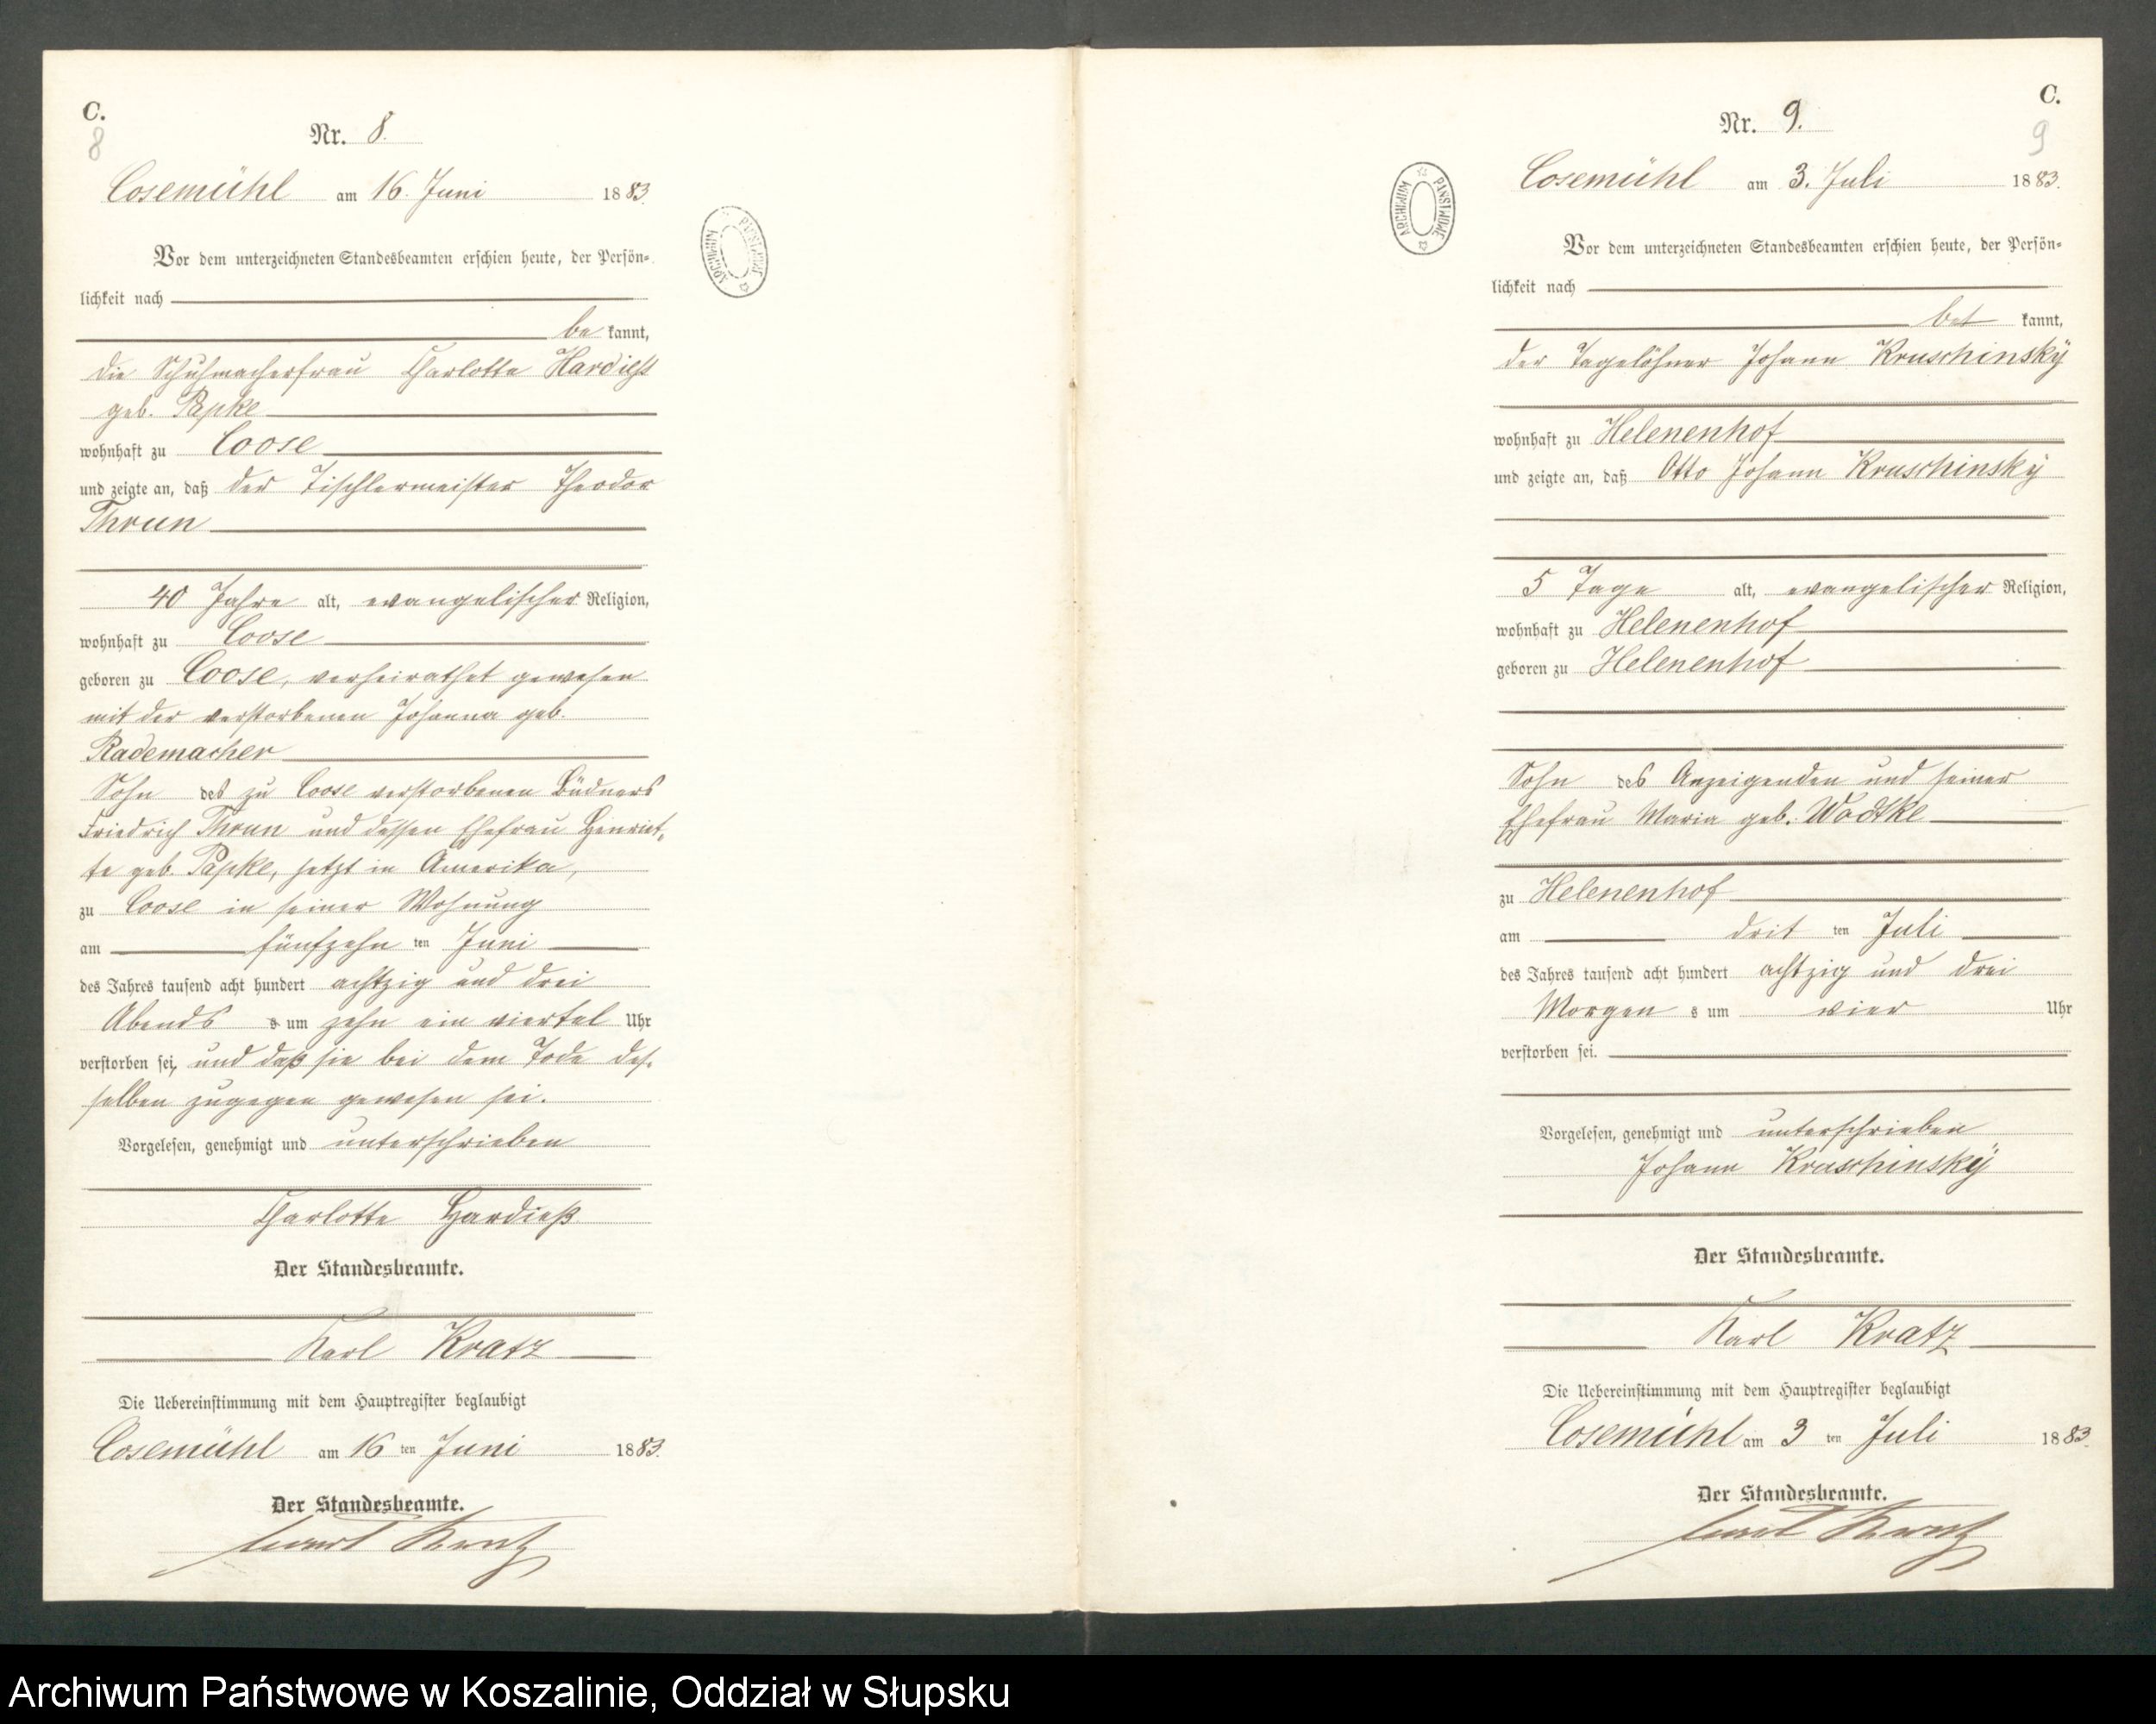 C.
8
Nr. 8.
Cosemühl am 16. Juni 1883.
Vor dem unterzeichneten Standesbeamten erschien heute, der Persön-
lichkeit nach
be kannt,
die Schuhmacherfrau Charlotte Hardieß
geb. Papke
wohnhaft zu Coose
und zeigte an, daß der Tischlermeister Theodor
Thrun
40 Jahre alt, evangelischer Religion,
wohnhaft zu Coose
geboren zu Coose, verheirathet gewesen
mit der verstorbenen Johanna geb.
Rademacher
Sohn des zu Coose verstorbenen Büdners
Friedrich Thrun und dessen Ehefrau Henriet-
te geb. Papke, jetzt in Amerika,
zu Coose in seiner Wohnung
am fünfzehn ten Juni
des Jahres tausend acht hundert achtzig und drei
Abends um zehn ein viertel Uhr
verstorben sei, und daß sie bei dem Tode des-
selben zugegen gewesen sei.
Vorgelesen, genehmigt und unterschrieben
Charlotte Hardieß
Der Standesbeamte.
Karl Kratz
Die Uebereinstimmung mit dem Hauptregister beglaubigt
Cosemühl am 16 ten Juni 1883.
Der Standesbeamte.
Karl Kratz
ARCHIWUM PAŃSTWOWE
C.
9
Nr. 9.
Cosemühl am 3. Juli 1883.
Vor dem unterzeichneten Standesbeamten erschien heute, der Persön-
lichkeit nach
kannt,
der Tagelöhner Johann Kruschinsky
wohnhaft zu Helenenhof
und zeigte an, daß Otto Johann Kruschinsky
5 Tage alt, evangelischer Religion,
wohnhaft zu Helenenhof
geboren zu Helenenhof
Sohn des Anzeigenden und seiner
Ehefrau Maria geb. Wodtke
zu Helenenhof
am drit ten Juli
des Jahres tausend acht hundert achtzig und drei
Morgen s um vier Uhr
verstorben sei.
Vorgelesen, genehmigt und unterschrieben
Johann Kruschinsky
Der Standesbeamte.
Karl Kratz
Die Uebereinstimmung mit dem Hauptregister beglaubigt
Cosemühl am 3 ten Juli 1883.
Der Standesbeamte.
Karl Kratz
ARCHIWUM PAŃSTWOWE
Archiwum Państwowe w Koszalinie, Oddział w Słupsku